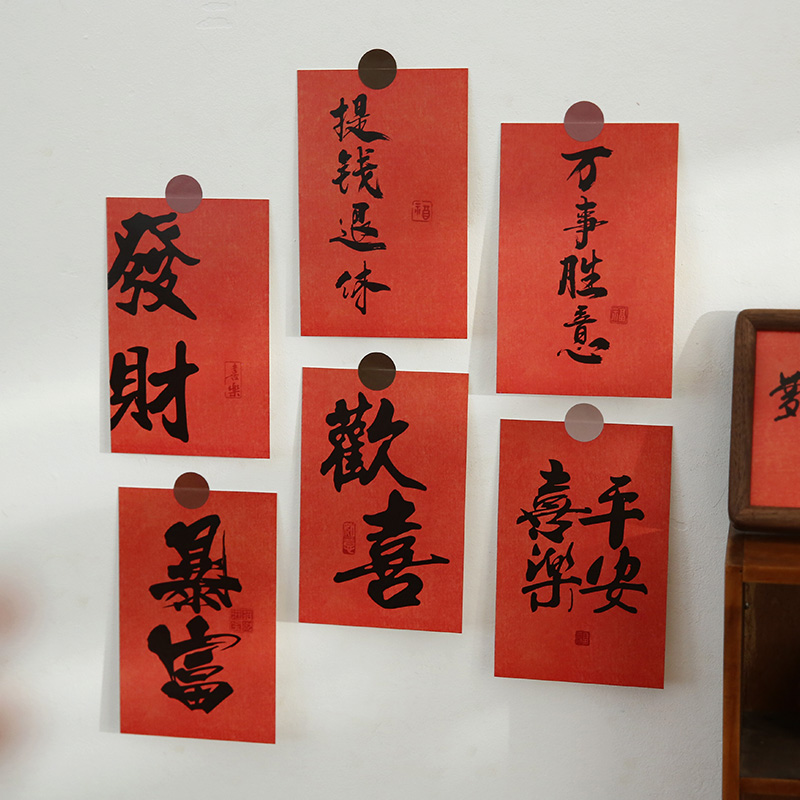 提钱退休
万事胜意
發財
歡喜
平安
喜樂
暴富